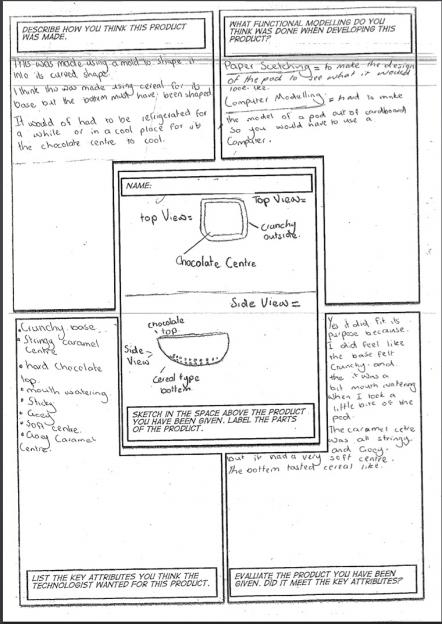 DESCRIBE HOW YOU THINK THIS PRODUCT
WAS MADE.
This was made using a mold to shape it
into its curved shape.
I think this was made using cereal for its
base but the bottem must have been shaped
It would of had to be refrigerated for
a while or in a cool place for
the chocolate centre to cool.
WHAT FUNCTIONAL MODELLING DO YOU
THINK WAS DONE WHEN DEVELOPING THIS
PRODUCT?
Paper Scetching = to make the design
of the pod to see what it would
look like.
Computer Modelling = to make
the model of a pod out of cardboard
So you would have to use a
Computer.
NAME:
Top View=
top View=
Crunchy
outside.
Chocolate Centre
Side View =
chocolate
top
Side
View
Cereal type
bottem
SKETCH IN THE SPACE ABOVE THE PRODUCT
YOU HAVE BEEN GIVEN. LABEL THE PARTS
OF THE PRODUCT.
• Crunchy base
• Stringy caramel
Centre
• hard Chocolate
top.
• mouth watering
• Sticky
• Gooey
• Soft centre.
• Gooey Caramel
Centre.
LIST THE KEY ATTRIBUTES YOU THINK THE
TECHNOLOGIST WANTED FOR THIS PRODUCT.
Yes it did fit its
purpose because
I did feel like
the base felt
Crunchy and
the it was a
bit mouth watering
when I took a
little bite of the
pod.
The caramel cetre
was all stringy
and Gooy.
but it had a very soft centre.
The bottem tasted cereal like.
EVALUATE THE PRODUCT YOU HAVE BEEN
GIVEN. DID IT MEET THE KEY ATTRIBUTES?